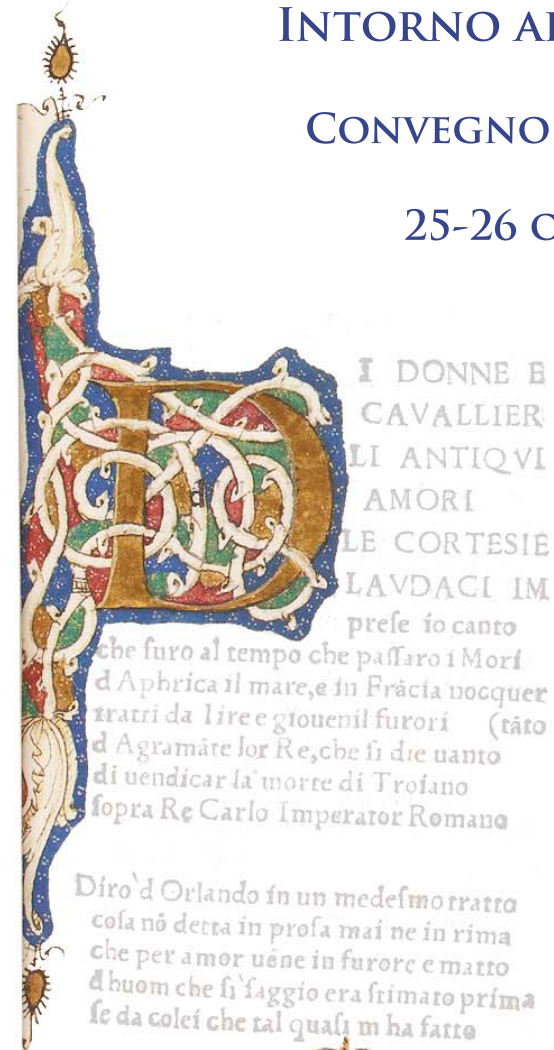 INTORNO AL
CONVEGNO
25-26 O
DI DONNE E
CAVALLIER
LI ANTIQVI
AMORI
LE CORTESIE
LAVDACI IM
preſe io canto
che furo al tempo che paſſaro i Mori
d Aphrica il mare,e in Frãcia nocquer
tratti da l ire e giouenil furori (tãto
d Agramãte lor Re,che ſi die uanto
di uendicar la morte di Troiano
ſopra Re Carlo Imperator Romano
Diro d Orlando in un medeſmo tratto
coſa nõ detta in proſa mai ne in rima
che per amor uẽne in furore e matto
d huom che ſi ſaggio era ſtimato prima
ſe da colei che tal quaſi m ha fatto